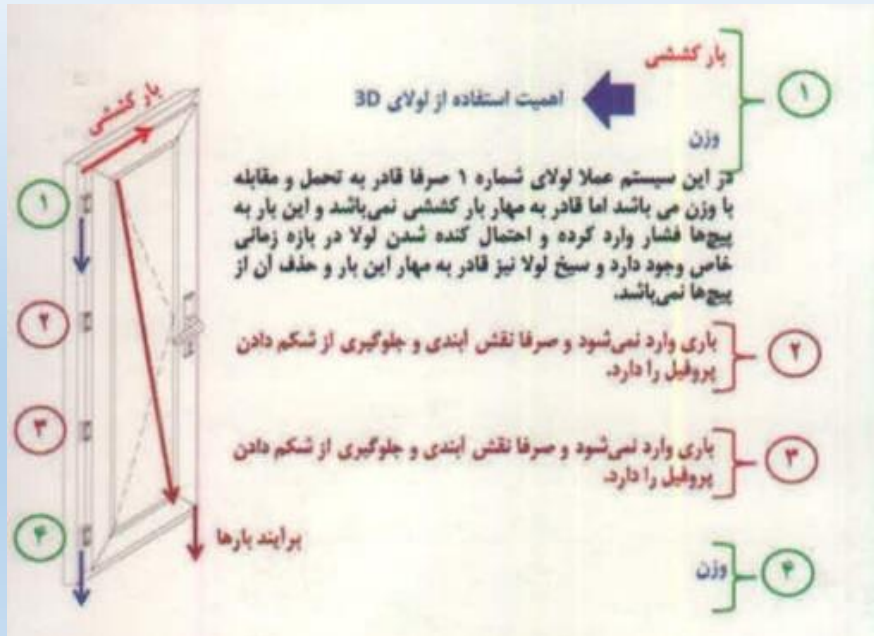 بار کششی
۱
اهمیت استفاده از لولای 3D
وزن
در این سیستم عملا لولای شماره ۱ صرفا قادر به تحمل و مقابله
با وزن می باشد اما قادر به مهار بار کششی نمی‌باشد و این بار به
پیچ‌ها فشار وارد کرده و احتمال کنده شدن لولا در بازه زمانی
خاص وجود دارد و سیخ لولا نیز قادر به مهار این بار و حذف آن از
پیچ‌ها نمی‌باشد.
۲
باری وارد نمی‌شود و صرفا نقش آبندی و جلوگیری از شکم دادن
پروفیل را دارد.
۳
باری وارد نمی‌شود و صرفا نقش آبندی و جلوگیری از شکم دادن
پروفیل را دارد.
۴
وزن
بار کششی
۱
۲
۳
۴
برآیند بارها